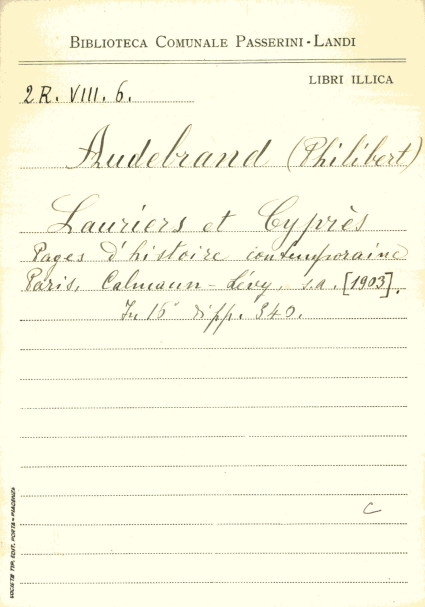 BIBLIOTECA COMUNALE PASSERINI-LANDI
LIBRI ILLICA
2R. VIII. 6.
Audebrand (Philibert)
Lauriers et Cyprès
Pages d'histoire contemporaine
Paris, Calmann-Lévy, s.a. [1903].
In 16° di pp. 340.
C
SOCIETÀ TIP. EDIT. PORTA - PIACENZA